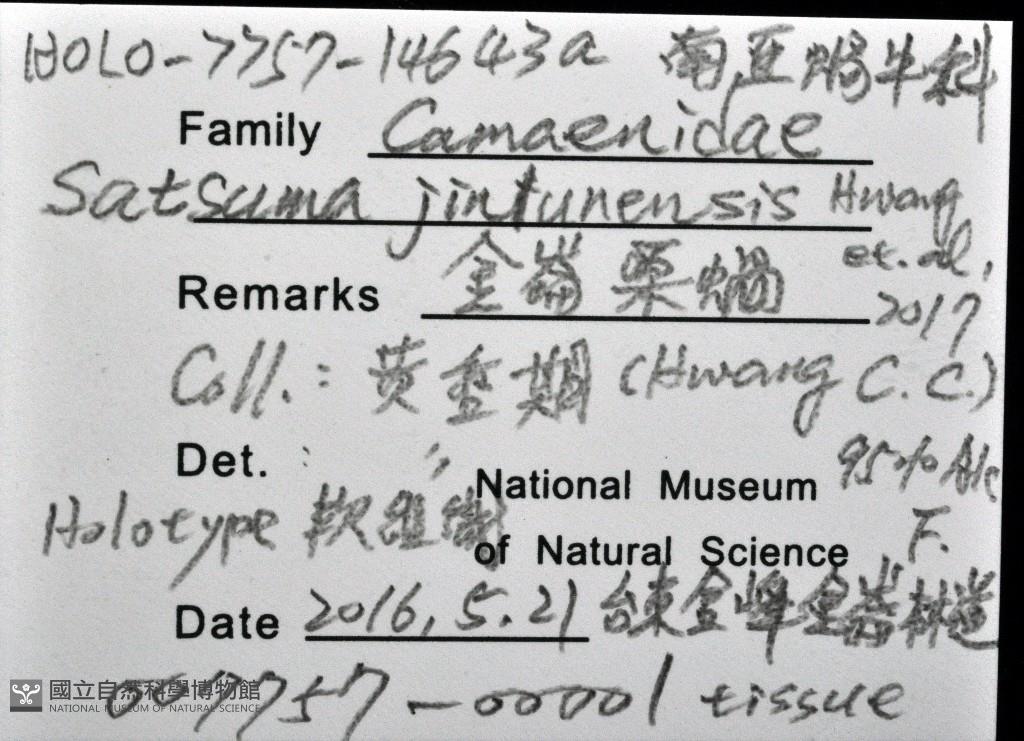 HOLO-7757-14643a 南亞蝸牛科
Family Camaenidae
Satsuma jinlunensis Hwang et. al, 2017
Remarks 金崙栗蝸
Coll.: 黃重期 (Hwang C. C.)
Det. : 〃 95% Alc
National Museum
Holotype 軟組織 F.
of Natural Science
Date 2016, 5. 21 台東金峰金崙林道
007757-00001 tissue
國立自然科學博物館
NATIONAL MUSEUM OF NATURAL SCIENCE